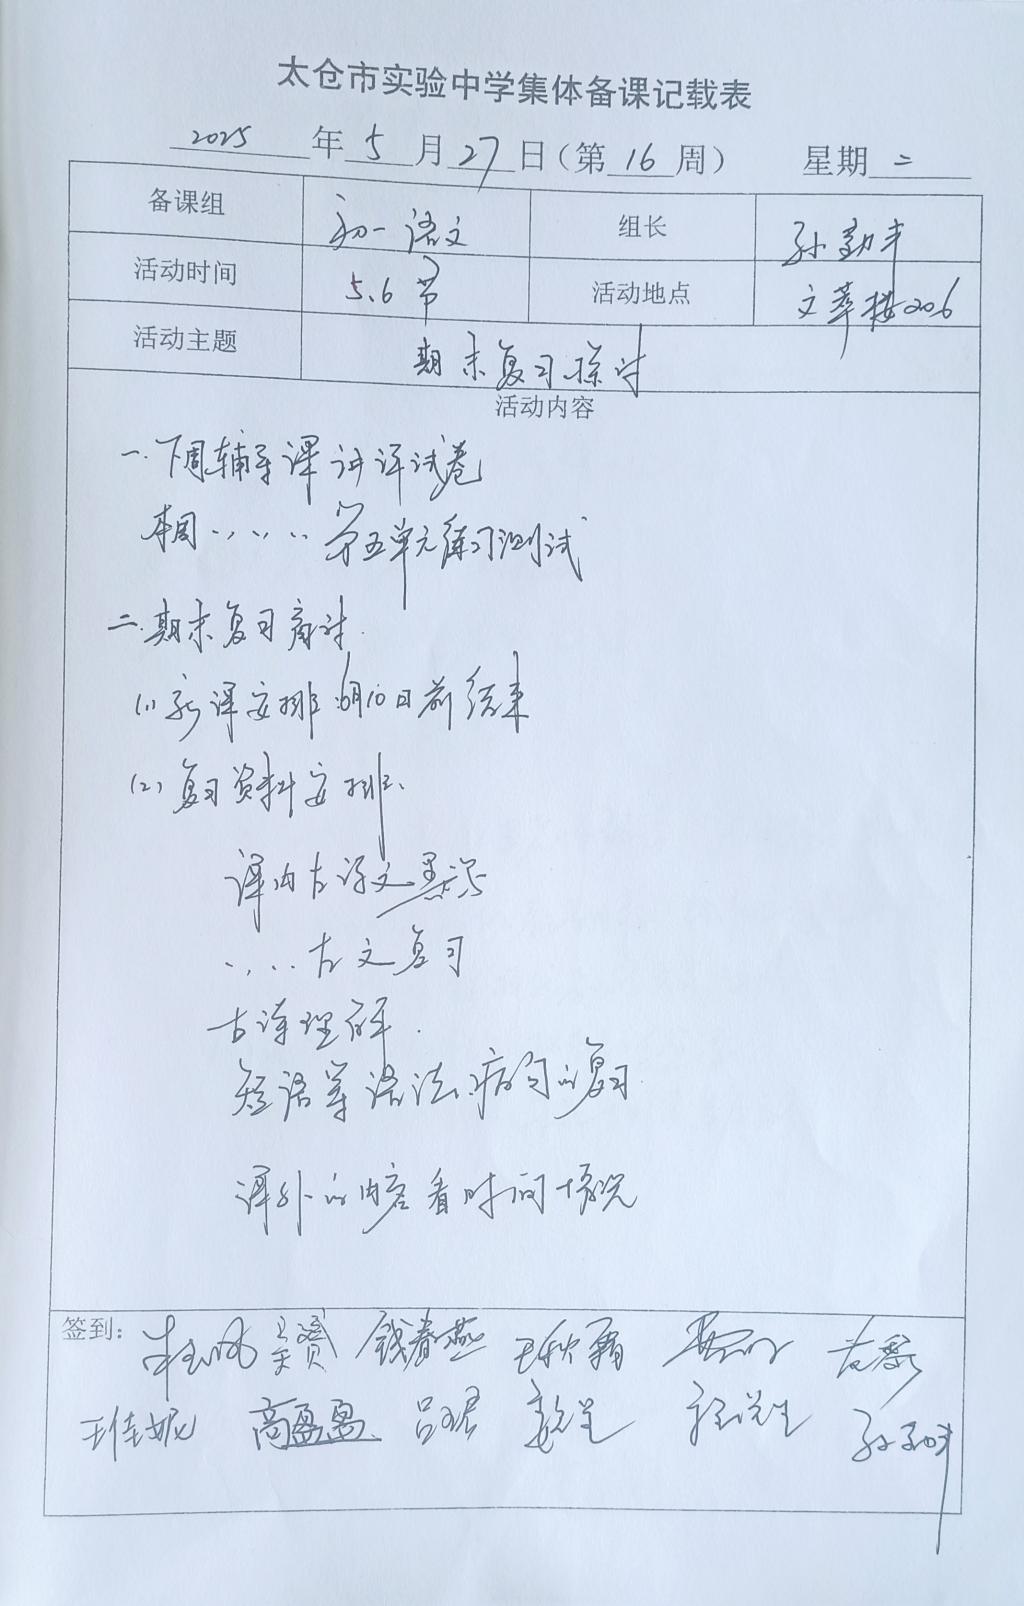 太仓市实验中学集体备课记载表
2025年5月27日（第16周） 星期二
备课组 初一语文 组长 孙勤丰
活动时间 5、6节 活动地点 文萃楼206
活动主题 期末复习探讨
活动内容
一.下周辅导课讲评试卷
本周、、、、第五单元练习测试
二.期末复习商讨.
(1)新课安排:6月10日前结束
(2)复习资料安排、
课内古诗文默写
、、、、古文复习
古诗理解.
短语等语法、病句的复习.
课外的内容看时间情况
签到： 吴赟 钱春燕 王秋霜
王佳妮 高盈盈 吕珺 孙勤丰